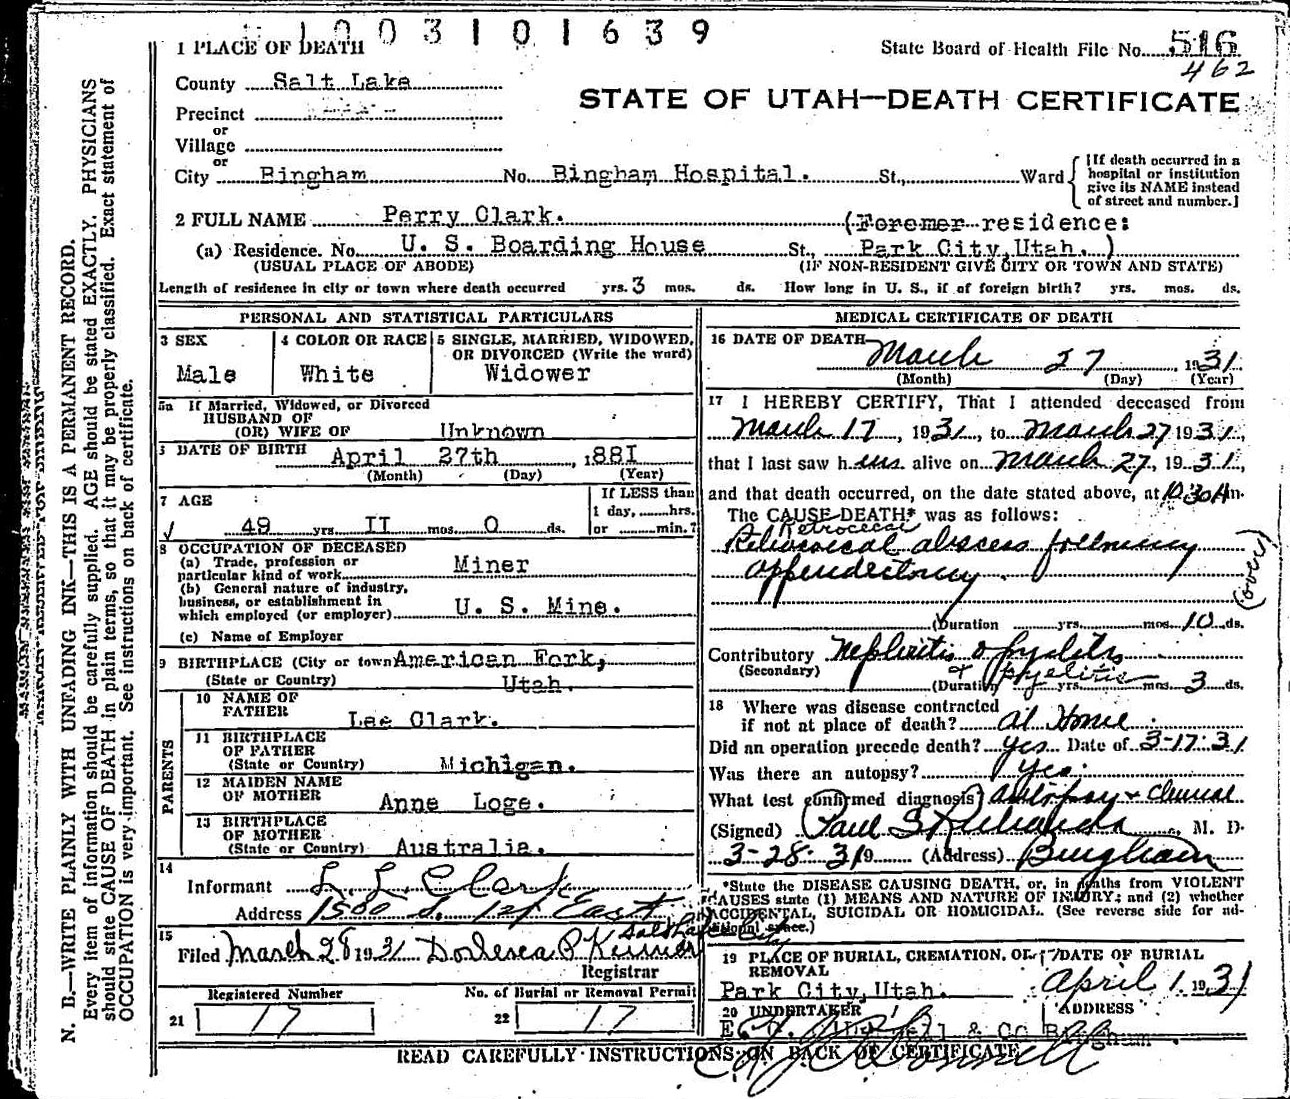 1003101639
1 PLACE OF DEATH
State Board of Health File No. 516
462
County Salt Lake
STATE OF UTAH—DEATH CERTIFICATE
Precinct
or
Village
or
City Bingham No. Bingham Hospital. St., Ward
[If death occurred in a hospital or institution give its NAME instead of street and number.]
2 FULL NAME Perry Clark. (Foremer residence:
(a) Residence. No. U. S. Boarding House St., Park City, Utah.)
(USUAL PLACE OF ABODE) (IF NON-RESIDENT GIVE CITY OR TOWN AND STATE)
Length of residence in city or town where death occurred yrs. 3 mos. ds. How long in U. S., if of foreign birth? yrs. mos. ds.
PERSONAL AND STATISTICAL PARTICULARS
3 SEX
Male
4 COLOR OR RACE
White
5 SINGLE, MARRIED, WIDOWED,
OR DIVORCED (Write the word)
Widower
5a If Married, Widowed, or Divorced
HUSBAND OF
(OR) WIFE OF Unknown
DATE OF BIRTH April 27th, 1881
(Month) (Day) (Year)
7 AGE
49 yrs. II mos. 0 ds.
If LESS than
1 day, hrs.
or min.?
8 OCCUPATION OF DECEASED
(a) Trade, profession or
particular kind of work Miner
(b) General nature of industry,
business, or establishment in
which employed (or employer) U. S. Mine.
(c) Name of Employer
9 BIRTHPLACE (City or town American Fork,
(State or Country) Utah.
PARENTS
10 NAME OF
FATHER Lee Clark.
11 BIRTHPLACE
OF FATHER
(State or Country) Michigan.
12 MAIDEN NAME
OF MOTHER Anne Loge.
13 BIRTHPLACE
OF MOTHER
(State or Country) Australia.
14
Informant L. L. Clark
Address 1500 S. 1st East
Salt Lake City
15
Filed March 28 1931
Registrar
Registered Number
21 17
No. of Burial or Removal Permit
22 17
MEDICAL CERTIFICATE OF DEATH
16 DATE OF DEATH
March 27, 1931
(Month) (Day) (Year)
17 I HEREBY CERTIFY, That I attended deceased from
March 17, 1931, to March 27 1931,
that I last saw h im alive on March 27, 1931,
and that death occurred, on the date stated above, at 10:30A m.
The CAUSE DEATH* was as follows:
Retrocecal
Retrocecal abscess following
appendectomy
(over)
(Duration yrs. mos. 10 ds.
Contributory Nephritis & pyelitis
(Secondary) & pyelitis
(Duration yrs. mos. 3 ds.
18 Where was disease contracted
if not at place of death? At Home
Did an operation precede death? yes Date of 3-17-31
Was there an autopsy? yes.
What test confirmed diagnosis? autopsy & clinical
(Signed) Paul S Richards, M. D.
3-28-319 (Address) Bingham
*State the DISEASE CAUSING DEATH, or, in deaths from VIOLENT
CAUSES state (1) MEANS AND NATURE OF INJURY; and (2) whether
ACCIDENTAL, SUICIDAL OR HOMICIDAL. (See reverse side for additional space.)
19 PLACE OF BURIAL, CREMATION, OR REMOVAL
Park City, Utah.
DATE OF BURIAL
April 1, 1931
20 UNDERTAKER
ADDRESS
& Co Bingham
READ CAREFULLY INSTRUCTIONS ON BACK OF CERTIFICATE
N. B.—WRITE PLAINLY WITH UNFADING INK—THIS IS A PERMANENT RECORD.
Every item of information should be carefully supplied. AGE should be stated EXACTLY. PHYSICIANS
should state CAUSE OF DEATH in plain terms, so that it may be properly classified. Exact statement of
OCCUPATION is very important. See instructions on back of certificate.